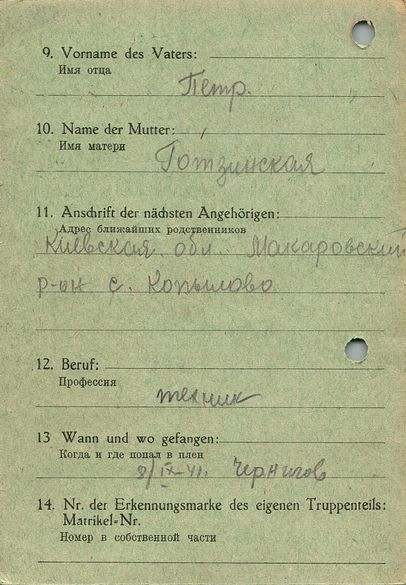 9. Vorname des Vaters:
Имя отца
Петр.
10. Name der Mutter:
Имя матери
Готзинская
11. Anschrift der nächsten Angehörigen:
Адрес ближайших родственников
Киевская обл. Макаровский
р-он с. Копылово
12. Beruf:
Профессия
техник
13 Wann und wo gefangen:
Когда и где попал в плен
8/IX-41. Чернигов
14. Nr. der Erkennungsmarke des eigenen Truppenteils:
Matrikel-Nr.
Номер в собственной части